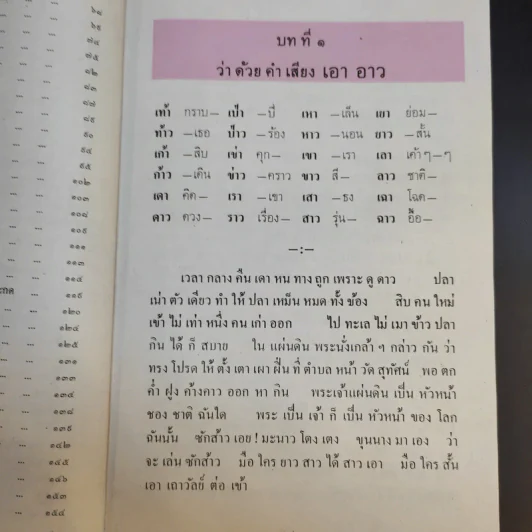 ๖๑
๖๕
๗๔
๗๕
๘๒
๘๓
๘๗
๘๙
๙๑
๙๔
๙๕
๑๐๒
๑๐๓
๑๐๘
๑๐๙
๑๑๑
๑๑๓
๑๑๔
๑๑๙
๑๒๐
๑๒๔
๑๒๕
๑๓๑
๑๓๔
๑๓๘
๑๔๒
๑๔๕
๑๔๖
๑๕๓
๑๕๔
บท ที่ ๑
ว่า ด้วย คำ เสียง เอา อาว
เท้า กราบ— เป่า —ปี่ เหา —เล็น เยา ย่อม—
ท้าว —เธอ ป่าว —ร้อง หาว —นอน ยาว —สั้น
เก้า —สิบ เข่า คุก— เขา —เรา เลา เค้าๆ—ๆ
ก้าว —เดิน ข่าว —คราว ขาว สี— ลาว ชาติ—
เดา คิด— เรา —เขา เสา —ธง เฉา โฉด—
ดาว ดวง— ราว เรื่อง— สาว รุ่น— ฉาว อื้อ—
—:—
เวลา กลาง คืน เดา หน ทาง ถูก เพราะ ดู ดาว ปลา
เน่า ตัว เดียว ทำ ให้ ปลา เหม็น หมด ทั้ง ข้อง สิบ คน ใหม่
เข้า ไม่ เท่า หนึ่ง คน เก่า ออก ไป ทะเล ไม่ เมา ข้าว ปลา
กิน ได้ ก็ สบาย ใน แผ่นดิน พระนั่งเกล้า ฯ กล่าว กัน ว่า
ทรง โปรด ให้ ตั้ง เตา เผา ฝิ่น ที่ ตำบล หน้า วัด สุทัศน์ พอ ตก
ค่ำ ฝูง ค้างคาว ออก หา กิน พระเจ้าแผ่นดิน เป็น หัวหน้า
ของ ชาติ ฉันใด พระ เป็น เจ้า ก็ เป็น หัวหน้า ของ โลก
ฉันนั้น ซักส้าว เอย ! มะนาว โตง เตง ขุนนาง มา เอง ว่า
จะ เล่น ซักส้าว มือ ใคร ยาว สาว ได้ สาว เอา มือ ใคร สั้น
เอา เถาวัลย์ ต่อ เข้า